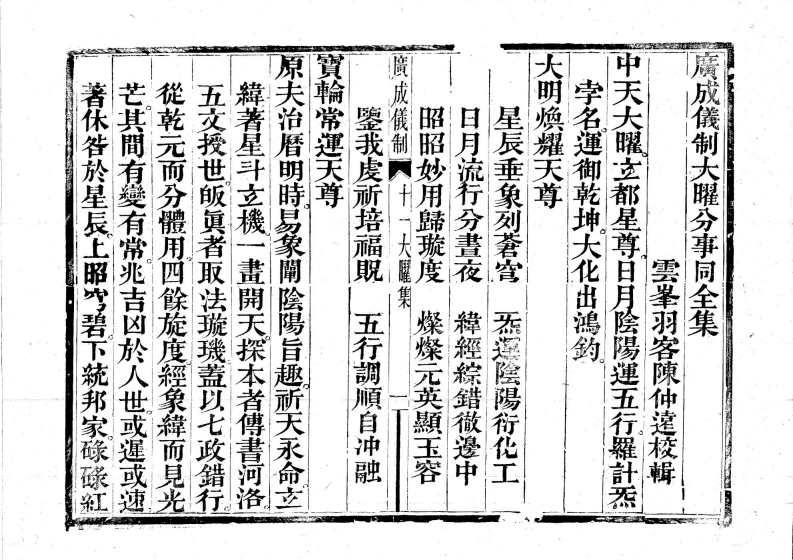 廣成儀制大曜分事同全集
雲峯羽客陳仲遠校輯
中天大曜。立都星尊。日月陰陽運五行。羅計炁
孛名。運御乾坤。大化出鴻鈞。
大明煥耀天尊
星辰垂象列蒼穹　炁運陰陽衍化工
日月流行分晝夜　緯經綜錯徹邊中
昭昭妙用歸璇度　燦燦元英顯玉容
廣成儀制　十一大曜集　一
鑒我虔祈培福貺　五行調順自冲融
寶輪常運天尊
原夫治曆明時。易象闡陰陽旨趣。祈天永命。立
緯著星斗立機一畫開天。探本者傳書河洛。
五文授世。皈眞者取法璇璣。蓋以七政錯行。
從乾元而分體用。四餘旋度。經象緯而見光
芒。其間有變有常。兆吉凶於人世。或遲或速
著休咎於星辰。上昭穹碧。下統邦家。碌碌紅